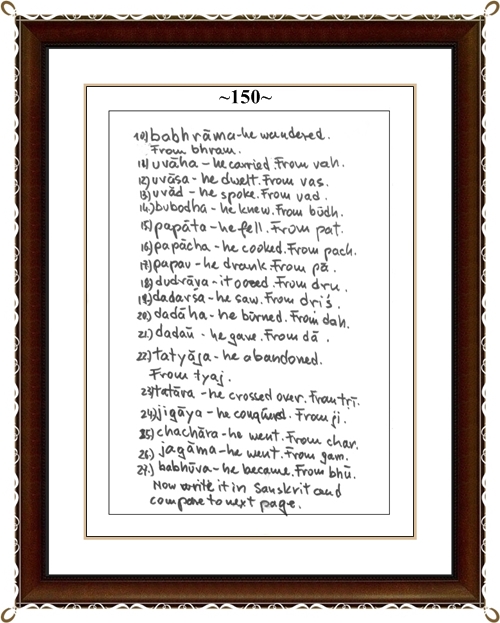 ~150~
10) babhrāma-he wandered.
From bhram.
11) uvāha - he carried. From vah.
12) uvāsa - he dwelt. From vas.
13) uvād - he spoke. From vad.
14.) bubodha - he knew. From būdh.
15) papāta - he fell. From pat.
16) papācha - he cooked. From pach.
17) papau - he drank. From pā.
18) dudrāya - it oozed. From dru.
19.) dadarśa - he saw. From driś.
20) dadāha - he būrned. From dah.
21.) dadaū - he gave. From dā.
22.) tatyāja - he abandoned.
From tyaj.
23) tatāra - he crossed over. From trī.
24.) jigāya - he conqūered. From ji.
25.) chachāra - he went. From char.
26.) jagāma - he went. From gam.
27.) babhūva - he became. From bhū.
Now write it in Sanskrit and
compare to next page.